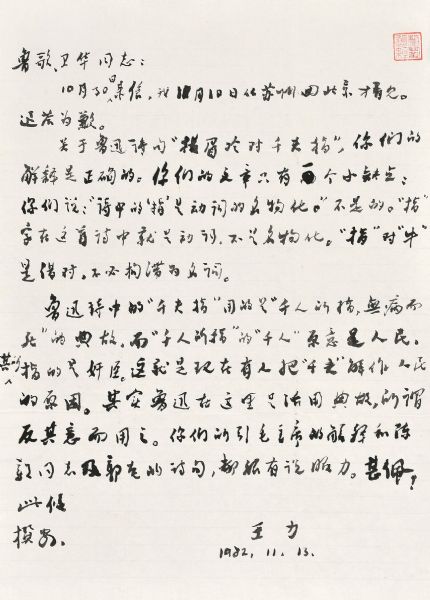 鲁歌、卫华同志：
10月30日来信，我11月10日从苏州回北京才看见。
迟答为歉。
关于鲁迅诗句"横眉冷对千夫指"，你们的
解释是正确的。你们的文章只有一个小缺点：
你们说："诗中的'指'是动词的名物化。"不是的。"指"
字在这首诗中就是动词，不是名物化。"指"对"牛"
是借对。不必拘滞为名词。
鲁迅诗中的"千夫指"用的是"千人所指，无病而
死"的典故，而"千人所指"的"千人"原意是人民，
其所指的是奸臣。这就是现在有人把"千夫"解作人民
的原因。其实鲁迅在这里只活用典故，所谓
反其意而用之。你们所引毛主席的解释和陈
毅同志及郭老的诗句，都很有说服力。甚佩！
此复
撰安。
王力
1982. 11. 13.